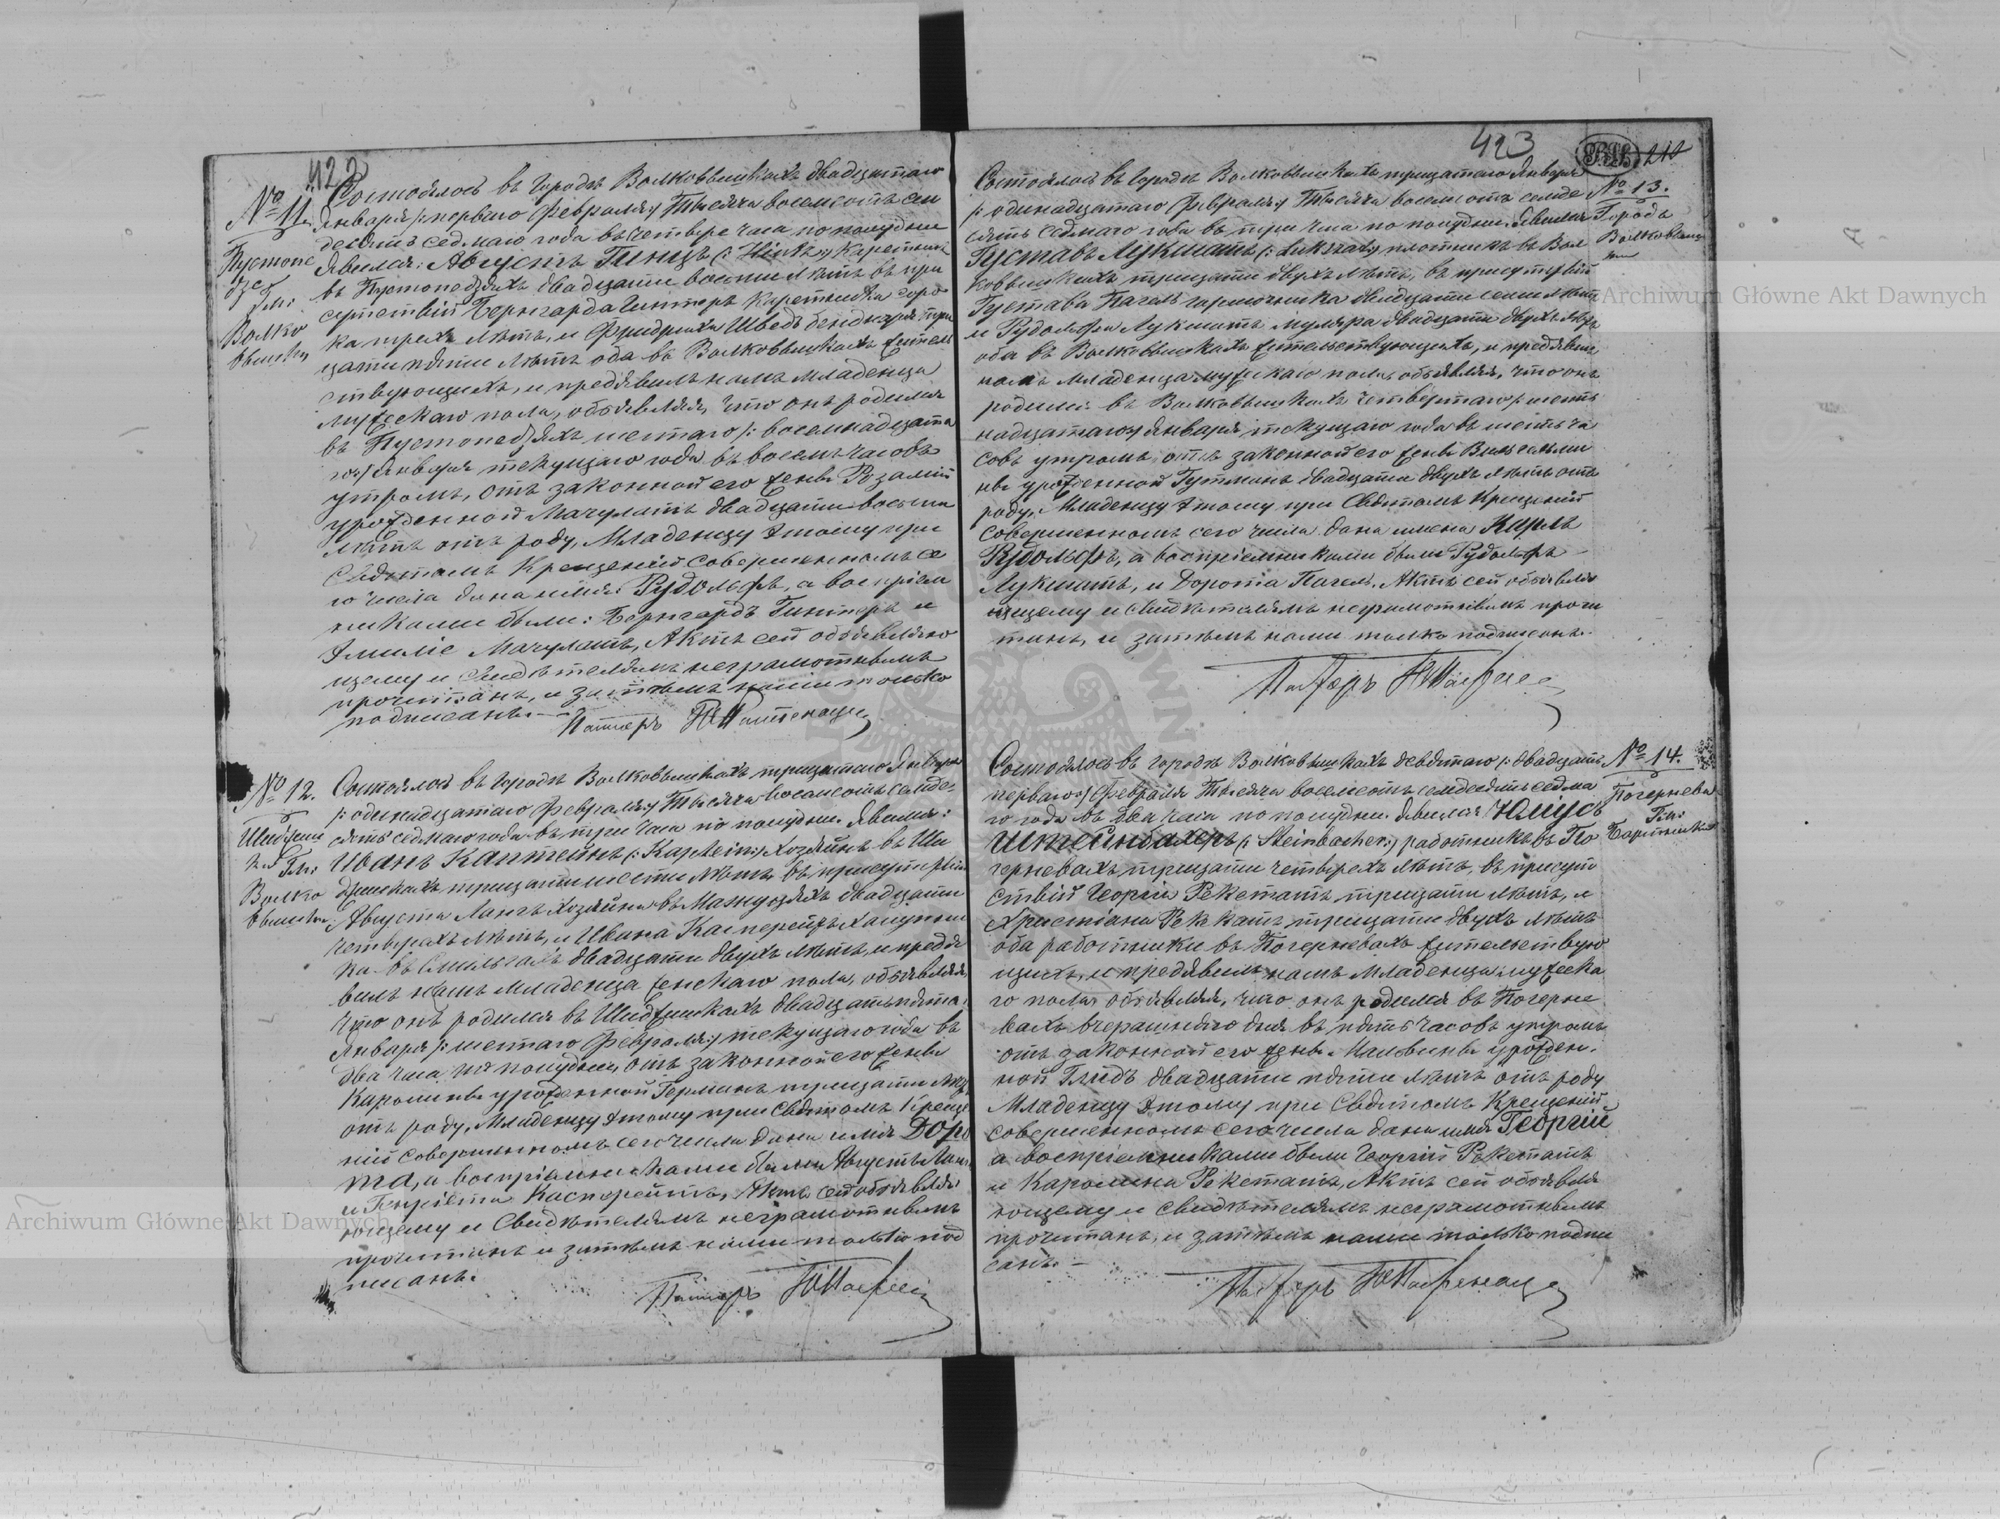 422
№ 11.
Пустопе
дзе
Гм:
Волко
вышки
Состоялось въ городѣ Волковышкахъ двадцатаго
Января /: перваго Февраля:/ Тысяча восемсотъ семь
десятъ седмаго года въ четвере часа по полудни
Явился: Августъ Гинцъ (: Hintz:) каретникъ
въ Пустопедзяхъ двадцати восьми лѣтъ, въ при
сутствіи Бернгарда Гинтеръ каретника соро
ка трехъ лѣтъ, и Фридриха Шведъ бендзаря три
цати пяти лѣтъ оба въ Волковышкахъ житель
ствующихъ, и предявилъ намъ младенца
мужескаго пола, объявляя, что онъ родился
въ Пустопедзяхъ шестаго /: восемнадцата
го:/ Января текущаго года въ восемь часовъ
утромъ, отъ законной его жены Розаліи
урожденной Мачулатъ двадцати восьми
лѣтъ отъ роду, Младенцу этому при
Святомъ Крещеніи совершенномъ се
го числа дано имя Рудольфъ, а воспріем
никами были: Бернгардъ Гинтеръ и
Эмиліе Мачулатъ, Актъ сей объявляю
щему и свидѣтелямъ неграмотнымъ
прочитанъ, и затѣмъ нами только
подписанъ. —
Пастеръ
№ 12.
Шидзеш
ки Гм:
Волко
вышки
Состоялось въ городѣ Волковышкахъ тридцатаго Января
/: одинадцатаго Февраля:/ Тысяча восемсотъ семде
сятъ седмаго года въ три часа по полудни. Явился:
Иванъ Каптейнъ (: Kaptein:) хозяинъ въ Ши
дзешкахъ трицати шести лѣтъ, въ присутствіи
Августа Лангъ хозяина въ Мажудзяхъ двадцати
четырехъ лѣтъ, и Ивана Касперейтъ халупни
ка въ Смильгахъ двадцати двухъ лѣтъ, и предъя
вилъ намъ младенца женскаго пола, объявляя,
что онъ родился въ Шидзешкахъ двадцатьпята
Января /: шестаго Февраля:/ текущаго года въ
два часа по полудни, отъ законной его жены
Каролины урожденной Германъ трицати лѣтъ
отъ роду, Младенцу этому при Святомъ Креще
ніи совершенномъ сего числа дано имя Доро
та, а воспріемниками были Августъ Лангъ
и Генріета Касперейтъ, Актъ сей объявля
ющему и Свидѣтелямъ неграмотнымъ
прочитанъ и затѣмъ нами только под
писанъ.
Пастеръ
423
212
№ 13.
Городъ
Волковыш
ки
Состоялось въ городѣ Волковышкахъ трицатаго Января
/: одинадцатаго Февраля:/ Тысяча восемсотъ семде
сятъ седмаго года въ три часа по полудни. Явился
Густавъ Лукшатъ (: Lukschat:) плотникъ въ Вол
ковышкахъ трицати двухъ лѣтъ, въ присутствіи
Густава Пагель гармочника двадцати семи лѣтъ
и Рудольфа Лукшатъ муляра двадцати двухъ лѣтъ
оба въ Волковышкахъ жительствующихъ, и предявилъ
намъ младенца мужескаго пола, объявляя, что онъ
родился въ Волковышкахъ четвертаго /: шест
надцатаго:/ Января текущаго года въ шесть ча
совъ утромъ, отъ законной его жены Вильгельми
ны урожденной Гутманъ двадцати двухъ лѣтъ отъ
роду, Младенцу этому при Святомъ Крещеніи
совершенномъ сего числа дано имена Карлъ
Рудольфъ, а воспріемниками были Рудольфъ
Лукшатъ, и Дорота Пагель, Актъ сей объявля
ющему и свидѣтелямъ неграмотнымъ прочи
танъ, и затѣмъ нами только подписанъ.
Пасторъ
№ 14.
Погернева
Гм:
Бартники
Состоялось въ городѣ Волковышкахъ девятаго /: двадцать
перваго:/ Февраля Тысяча восемсотъ семдесятъ седма
го года въ два часа по полудни. Явился Юліусъ
Штейнбахеръ (: Steinbacher:) работникъ въ По
герневахъ, трицати четырехъ лѣтъ, въ присут
ствіи Георгія Рекетатъ трицати лѣтъ, и
Христіана Реккатъ трицати двухъ лѣтъ
оба работники въ Погерневахъ жительствую
щихъ, и предявилъ намъ младенца мужеска
го пола объявляя, что онъ родился въ Погерне
вахъ вчерашняго дня въ пять часовъ утромъ
отъ законной его жены Мальвины урожден
ной Глидъ двадцати пяти лѣтъ отъ роду
Младенцу этому при Святомъ Крещеніи
совершенномъ сего числа дано имя Георгій
а воспріемниками были Георгій Рекетатъ
и Каролина Рекетатъ, Актъ сей объявля
ющему и свидѣтелямъ неграмотнымъ
прочитанъ, и затѣмъ нами только подпи
санъ. —
Пасторъ
Archiwum Główne Akt Dawnych
Archiwum Główne Akt Dawnych